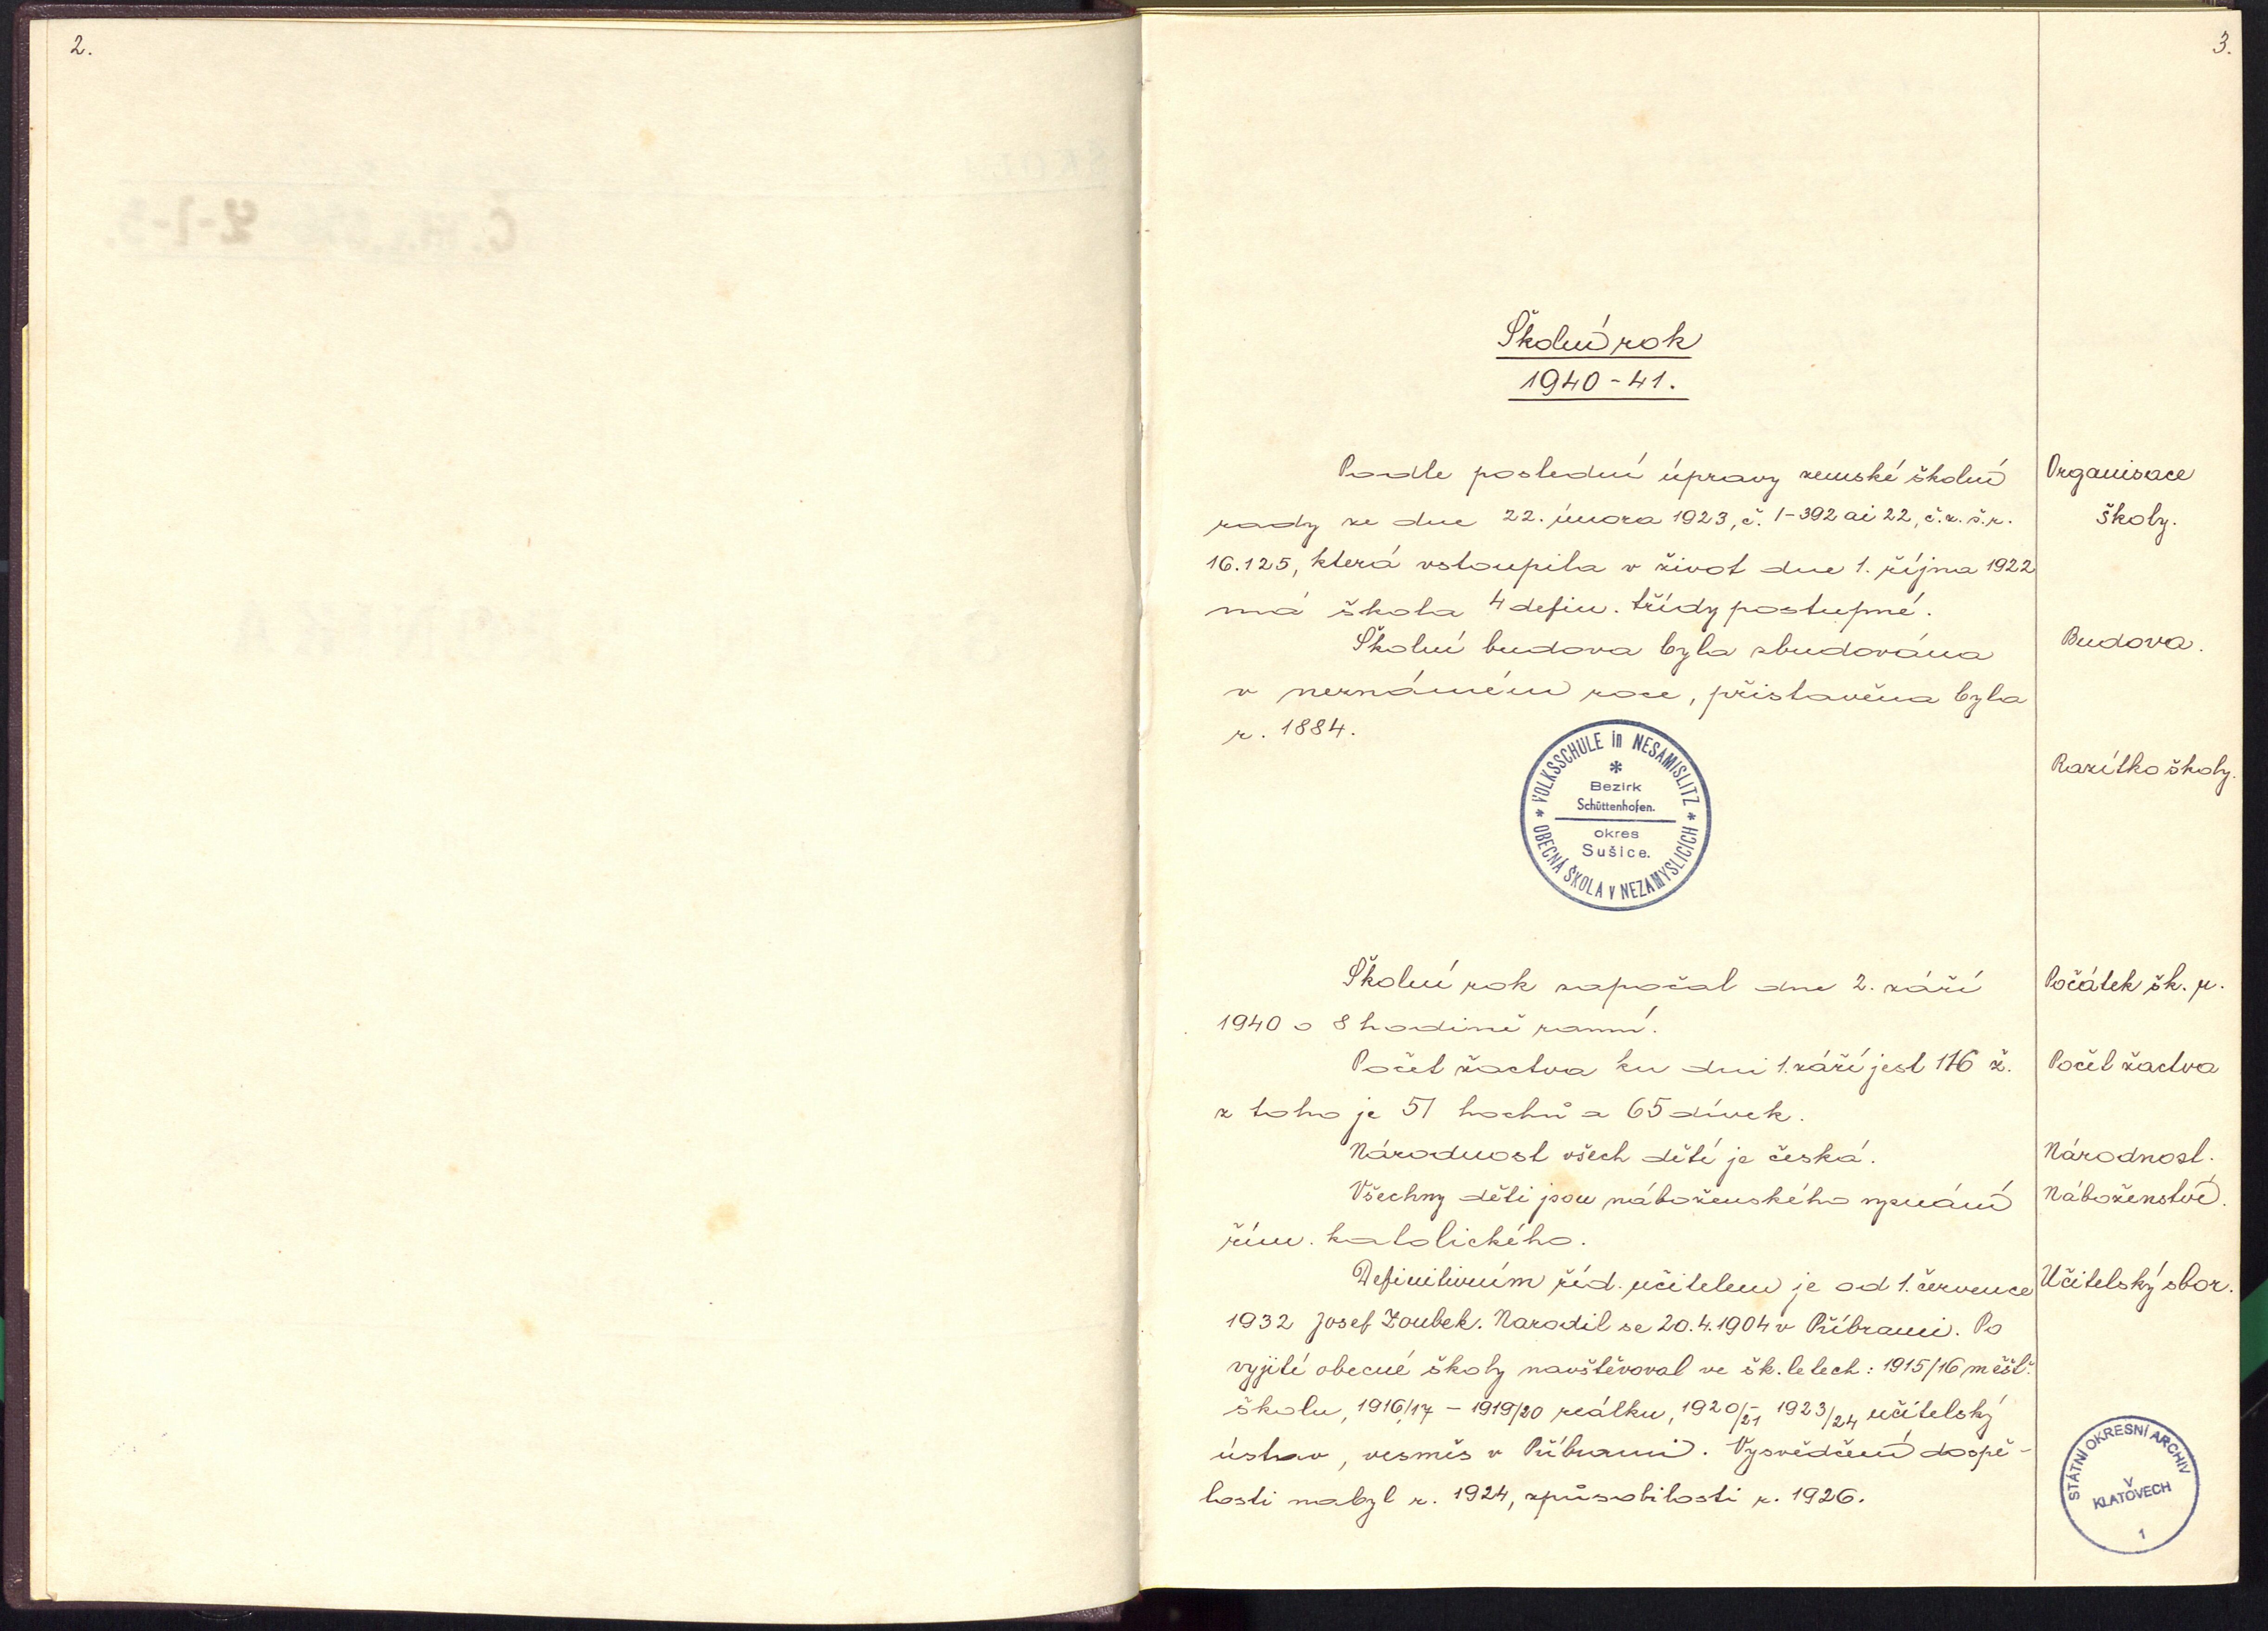 2.
3.
Školní rok
1940-41.
Podle poslední úpravy zemské školní
rady ze dne 22. února 1923, č. I-392 ai 22, č.z.š.r.
16.125, která vstoupila v život dne 1. října 1922
má škola 4 defin. třídy postupné.
Organisace
školy.
Školní budova byla zbudována
v neznámém roce, přistavěna byla
r. 1884.
Budova.
Razítko školy.
* VOLKSSCHULE in NESAMISLITZ *
*
Bezirk
Schüttenhofen.
okres
Sušice.
OBECNÁ ŠKOLA V NEZAMYSLICÍCH
Školní rok započal dne 2. září
1940 o 8 hodině ranní.
Počátek šk. r.
Počet žactva ku dni 1. září jest 116 ž.
z toho je 51 hochů a 65 dívek.
Počet žactva
Národnost všech dětí je česká.
Národnost.
Všechny děti jsou náboženského vyznání
řím. katolického.
Náboženství.
Definitivním říd. učitelem je od 1. července
1932 Josef Zoubek. Narodil se 20.4.1904 v Příbrami. Po
vyjití obecné školy navštěvoval ve šk. letech: 1915/16 měšť.
školu, 1916/17 - 1919/20 reálku, 1920/21 - 1923/24 učitelský
ústav, vesměs v Příbrami. Vysvědčení dospě-
losti nabyl r. 1924, způsobilosti r. 1926.
Učitelský sbor.
STÁTNÍ OKRESNÍ ARCHIV
V
KLATOVECH
1